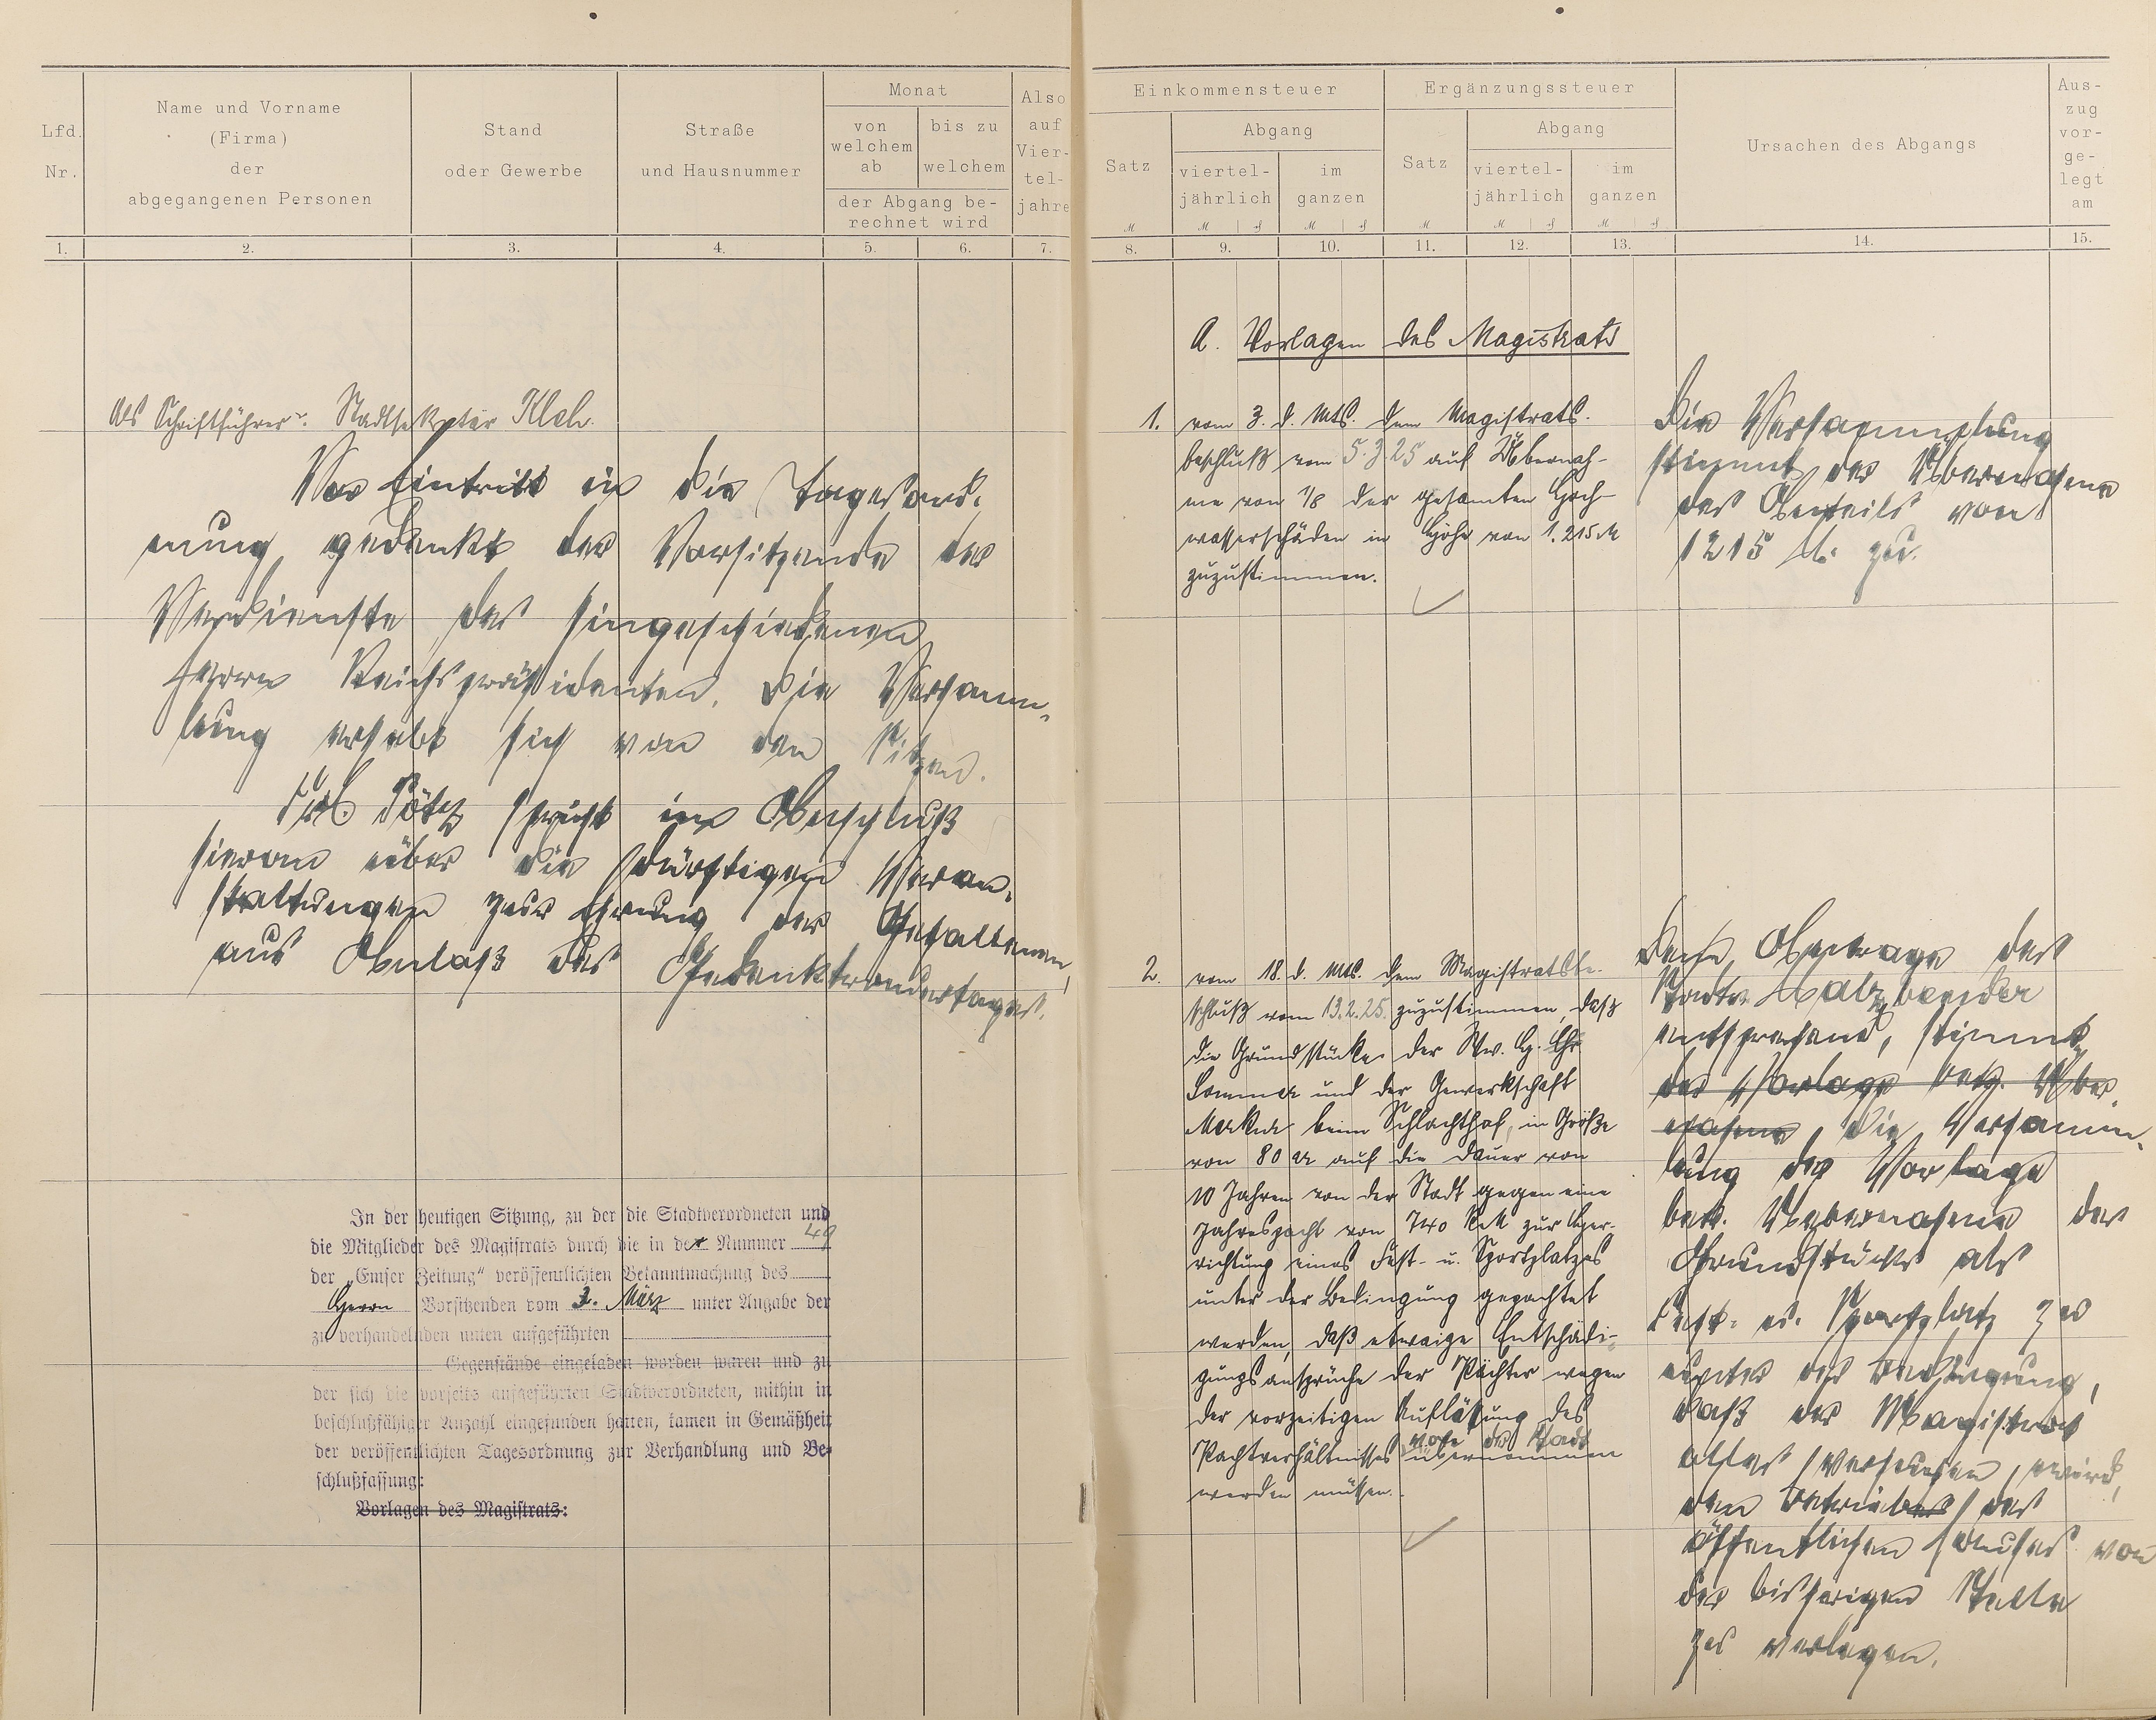 Lfd. Nr.
Name und Vorname
(Firma)
der
abgegangenen Personen
Stand
oder Gewerbe
Straße
und Hausnummer
Monat
von welchem ab
bis zu welchem
der Abgang be-
rechnet wird
Also auf Vier-tel-jahre
Einkommensteuer
Satz
Abgang
viertel-jährlich
im ganzen
Ergänzungssteuer
Satz
Abgang
viertel-jährlich
im ganzen
Ursachen des Abgangs
Aus-zug vor-ge-legt am
M M ₰ M ₰ M M ₰ M ₰
1. 2. 3. 4. 5. 6. 7. 8. 9. 10. 11. 12. 13. 14. 15.
Als Schriftführer: Stadtsekretär
Vor Eintritt in die Tagesord-
nung gedenkt der Vorsitzende der
Verdienste des hingeschiedenen
Herrn Reichspräsidenten. Die Versamm-
lung erhebt sich von den Sitzen.
spricht im Anschluß
hieran über die dürftigen Veran-
staltungen zur Ehrung der Gefallenen,
aus Anlaß des
In der heutigen Sitzung, zu der die Stadtverordneten und
die Mitglieder des Magistrats durch die in der Nummer 49
der „Emser Zeitung“ veröffentlichten Bekanntmachung des
Herrn Vorsitzenden vom 3. März unter Angabe der
zu verhandelnden unten aufgeführten
Gegenstände eingeladen worden waren und zu
der sich die vorseits aufgeführten Stadtverordneten, mithin in
beschlußfähiger Anzahl eingefunden hatten, kamen in Gemäßheit
der veröffentlichten Tagesordnung zur Verhandlung und Be-
schlußfassung:
Vorlagen des Magistrats:
A. Vorlagen des Magistrats
1. vom 3. d. Mts. dem Magistrats-
beschluß vom 5.3.25 auf Übernah-
me von 1/8 der gesamten Hoch-
wasserschäden in Höhe von 1.215 M
zuzustimmen.
Die Versammlung
stimmt der Übernahme
des Anteils von
1215 M. zu.
2. vom 18. d. Mts. dem Magistratsbe-
schluß vom 13.2.25. zuzustimmen, daß
die Grundstücke der Ww. G. Chr.
Sommer und der Gewerkschaft
Merkur beim Schlachthof, in Größe
von 80 ar auf die Dauer von
10 Jahren von der Stadt gegen eine
Jahrespacht von 740 RM zur Her-
richtung eines Fest- u. Sportplatzes
unter der Bedingung gepachtet
werden, daß etwaige Entschädi-
gungsansprüche der Pächter wegen
der vorzeitigen Auflösung des
Pachtverhältnisses von der Stadt übernommen
werden müssen.
Dem Antrage des
Stadtv. Balzbender
entsprechend, stimmt
der Vorlage betr. Über-
nahme, die Versamm-
lung der Vorlage
betr. Uebernahme der
Grundstücke als
Fest- u. Sportplatz zu
unter der Bedingung,
daß der Magistrat
alles versuchen wird,
den Betrieb des
öffentlichen Hauses von
der bisherigen Stelle
zu verlegen.